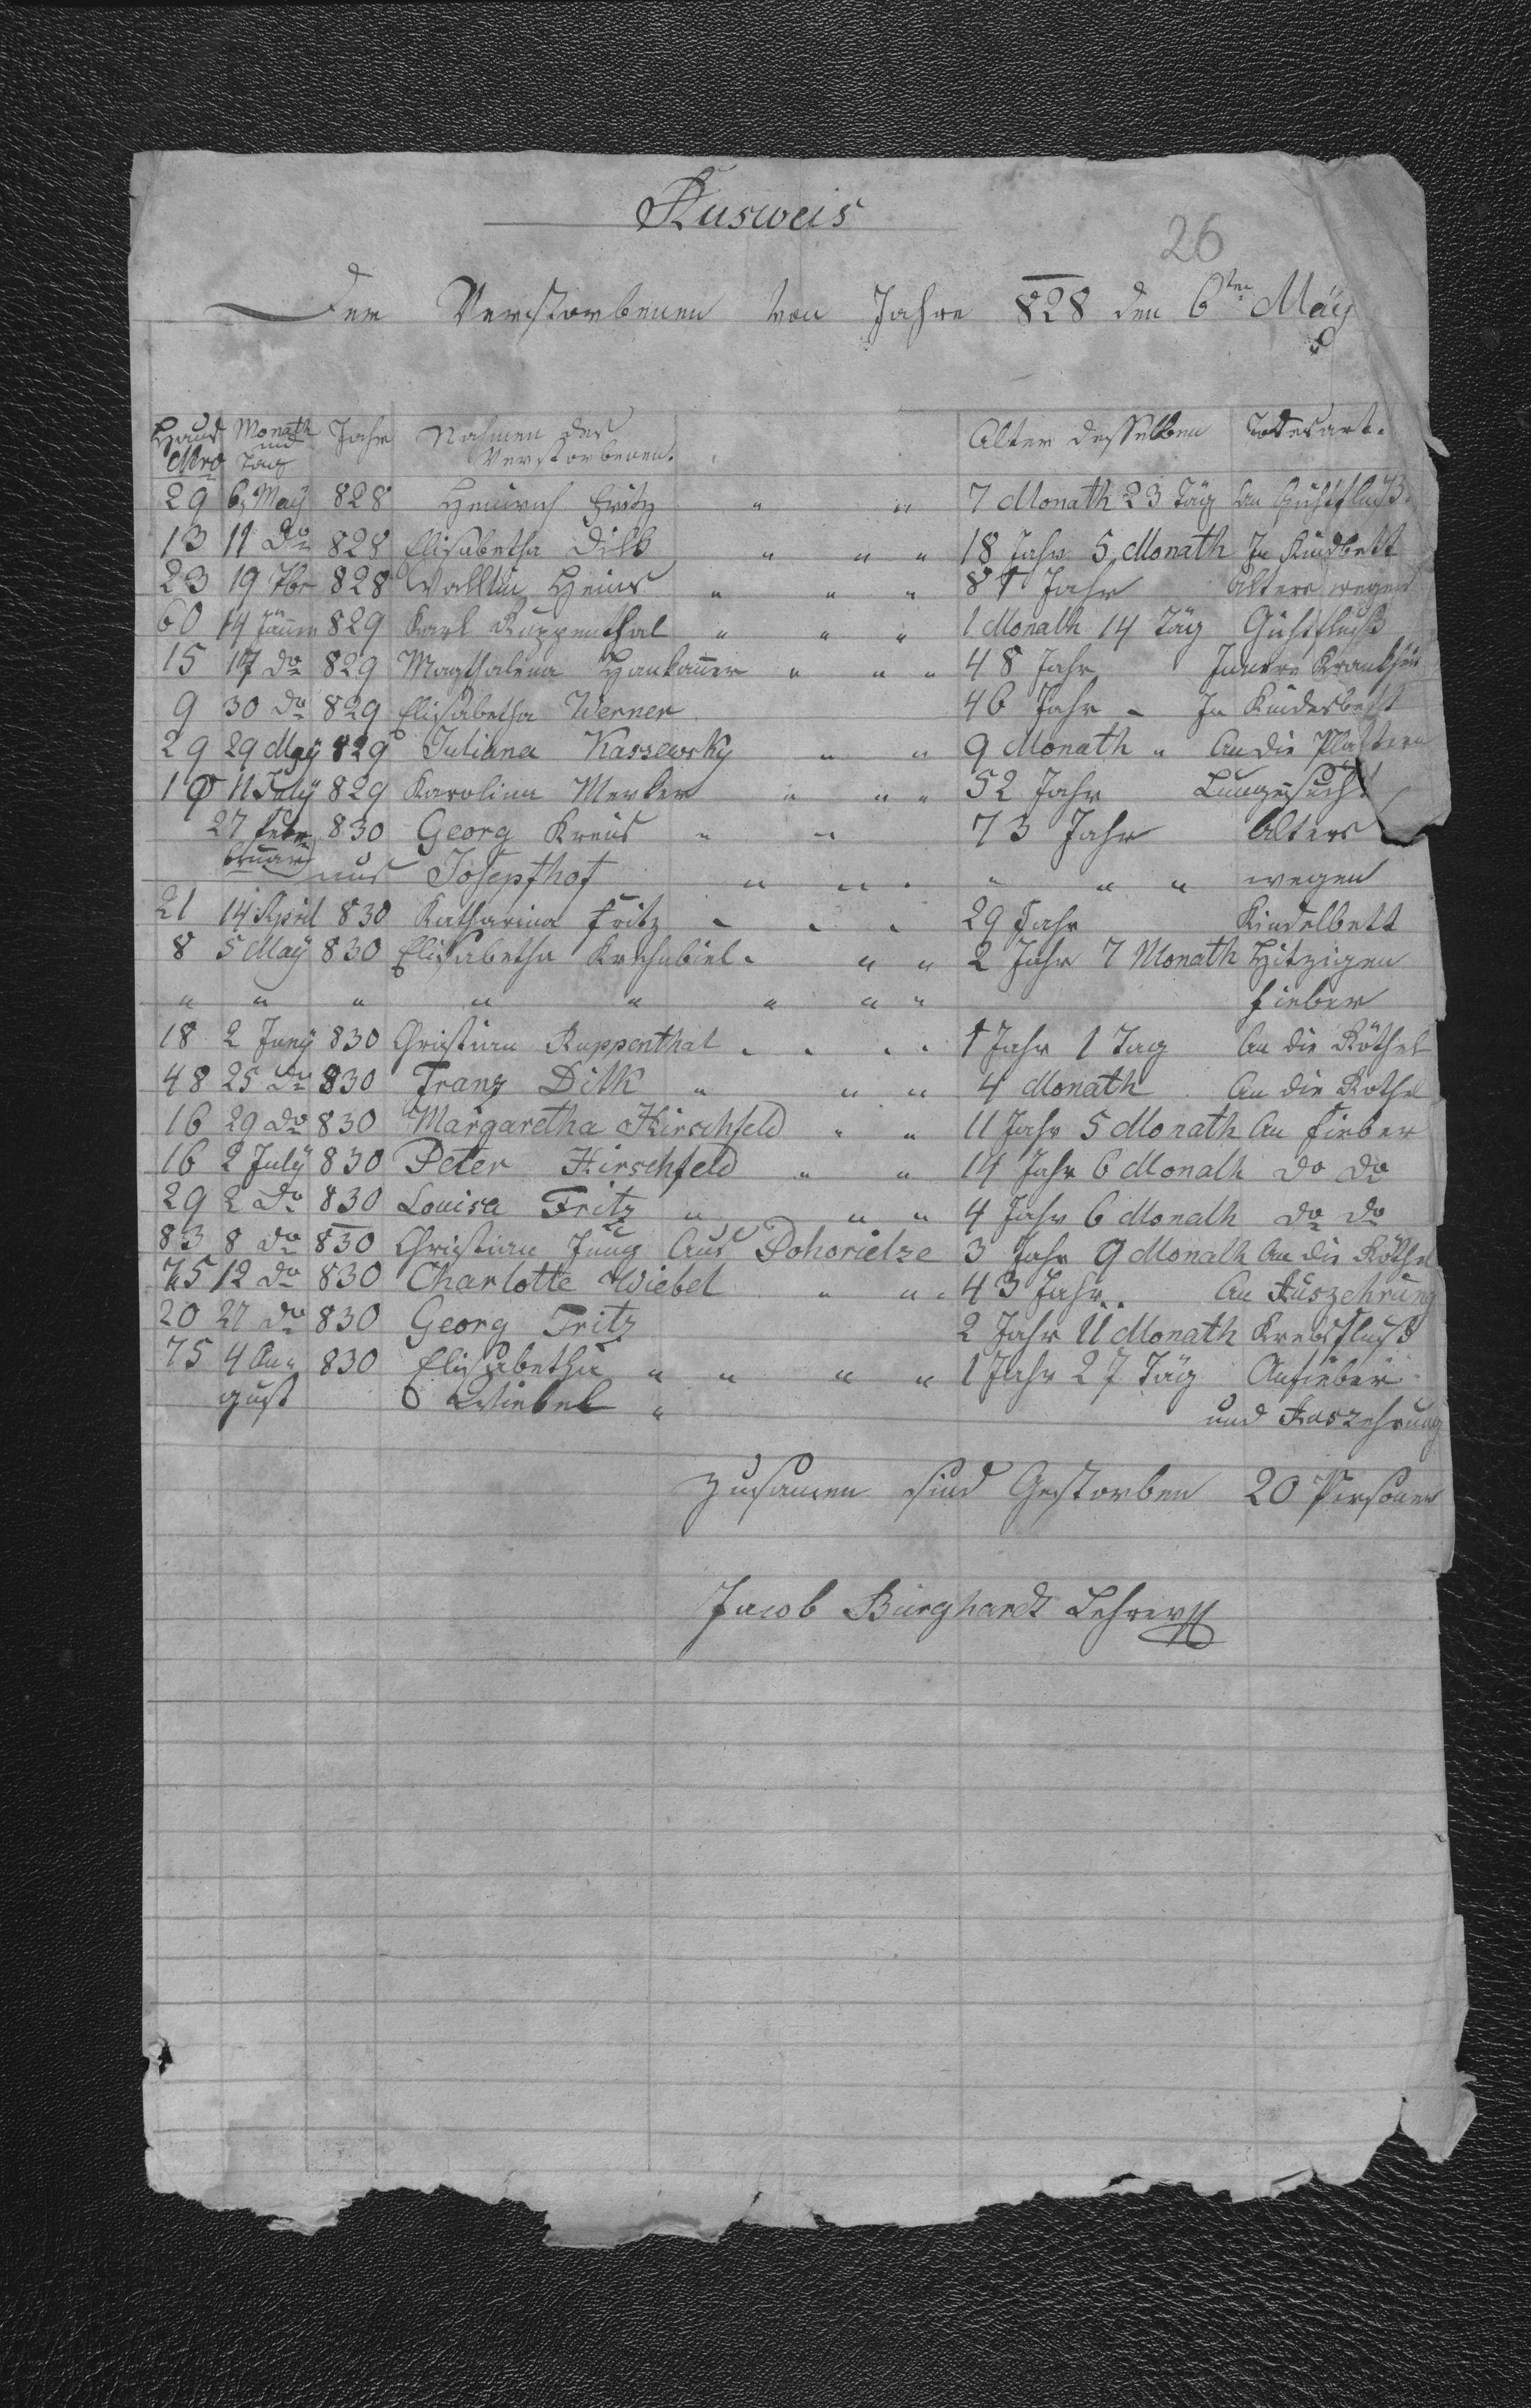 Ausweis
26
Der Verstorbenen von Jahre 828 den 6ten May
Haus Monath Jahr Nahmen des Alter desselben Todesart.
Nro und Tag Verstorbenen.
29 6 May 828 Heinrich Fritz " " 7 Monath 23 Täg An
13 11 do 828 Elisabetha Dilk " " " 18 Jahr 5 Monath In Kindbett
23 19 828 Heins " " " 81 Jahr Alters wegen
60 14 Jäner 829 Karl Ruppenthal " " " 1 Monath 14 Täg
15 17 do 829 Magthalena " " " 48 Jahr Innere Krankheit
9 30 do 829 Elisabetha Werner 46 Jahr - In Kindesbett
29 29 May 829 Juliana Kassewsky " " 9 Monath " An die
11 July 829 Karolina Merker " " " 52 Jahr
27 Febr 830 Georg Kreis " " 73 Jahr Alters
bruar aus Josepfhof " " " " " " wegen
21 14 April 830 Katharina Fritz " " " 29 Jahr Kindelbett
8 5 May 830 Elisabetha Krehabiel " " " 2 Jahr 7 Monath Hitzigen
" " " " " " " " Fieber
18 2 Juny 830 Christian Ruppenthal " " " " 1 Jahr 1 Tag An die Röthel
48 25 do 830 Franz Dilk " " " 4 Monath An die Röthel
16 29 do 830 Margaretha Hirschfeld " " 11 Jahr 5 Monath An Fieber
16 2 July 830 Peter Hirschfeld " " 14 Jahr 6 Monath do do
29 2 do 830 Louisa Fritz " " " 4 Jahr 6 Monath do do
83 8 do 830 Christian Jung Aus Pohorielze 3 Jahr 9 Monath An die Röthel
75 12 do 830 Charlotte Wiebel " " " 43 Jahr An Auszehrung
20 27 do 830 Georg Fritz 2 Jahr 11 Monath
75 4 Au" 830 Elisabetha " " " " 1 Jahr 27 Täg An Fieber
gust Wiebel " und Auszehrung
Zusamen sind Gestorben 20 Personen
Jacob Burghardt Lehrer